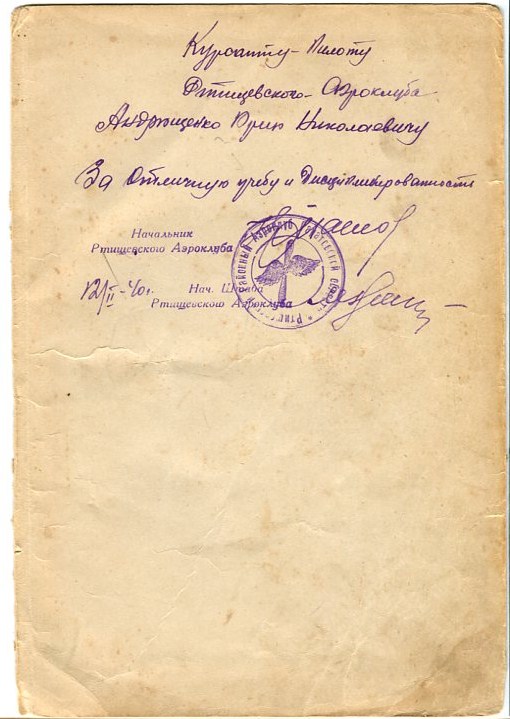 Курсанту-Пилоту
Ртищевского-Аэроклуба
Андрющенко Юрию Николаевичу
За Отличную учебу и Дисциплинированность
Начальник
Ртищевского Аэроклуба
12/II-40г.
Нач. Штаба
Ртищевского Аэроклуба